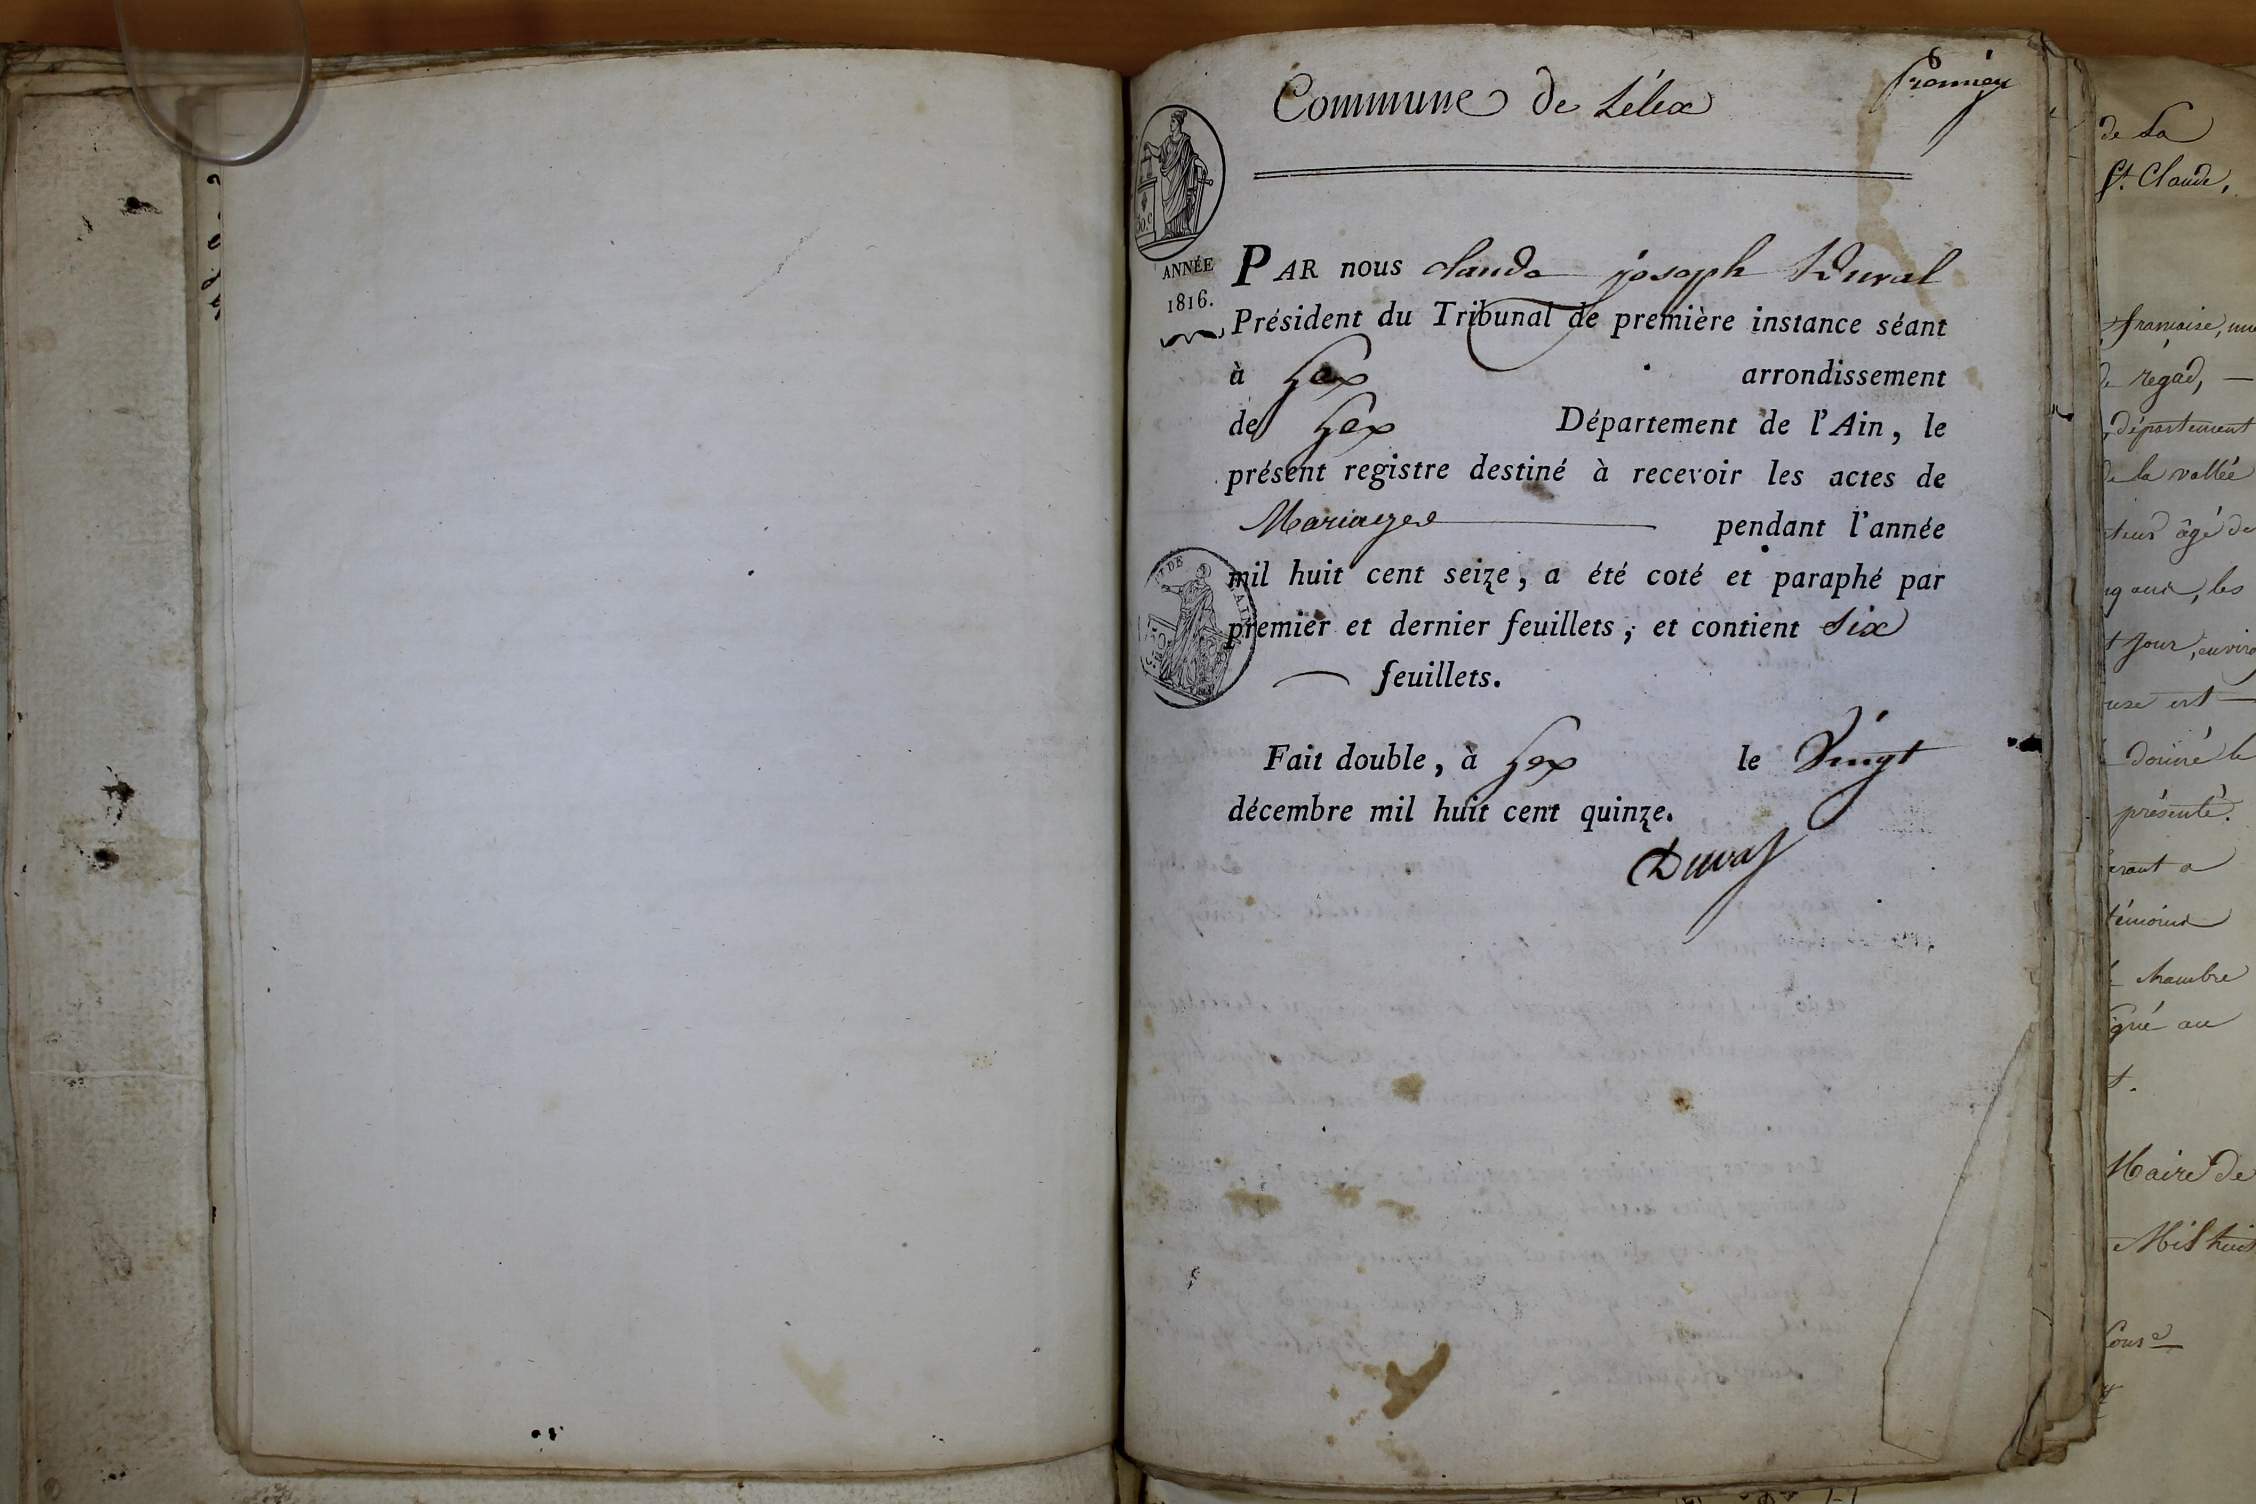 Commune de Lélex
premier
50.c
ANNÉE
1816.
PAR nous claude joseph Duval
Président du Tribunal de première instance séant
à Gex arrondissement
de Gex Département de l'Ain, le
présent registre destiné à recevoir les actes de
Mariages pendant l'année
mil huit cent seize, a été coté et paraphé par
premier et dernier feuillets, et contient six
feuillets.
Fait double, à Gex le Vingt
décembre mil huit cent quinze.
Duval
de La
St. Claude,
française, une
de régad,
département
de la vallée
âgé de
ans, les
jour, enviro
est
donné le
présenté.
témoins
chambre
au
Maire de
Mil huit